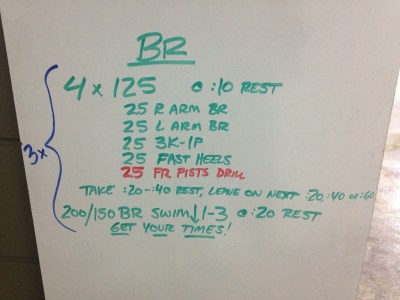 BR
3x
4 x 125 @ :10 REST
25 R ARM BR
25 L ARM BR
25 3K-1P
25 FAST HEELS
25 FR FISTS DRILL
TAKE :20-:40 REST, LEAVE ON NEXT :20, :40 OR :60
200/150 BR SWIM ↓ 1-3 @ :20 REST
GET YOUR TIMES!